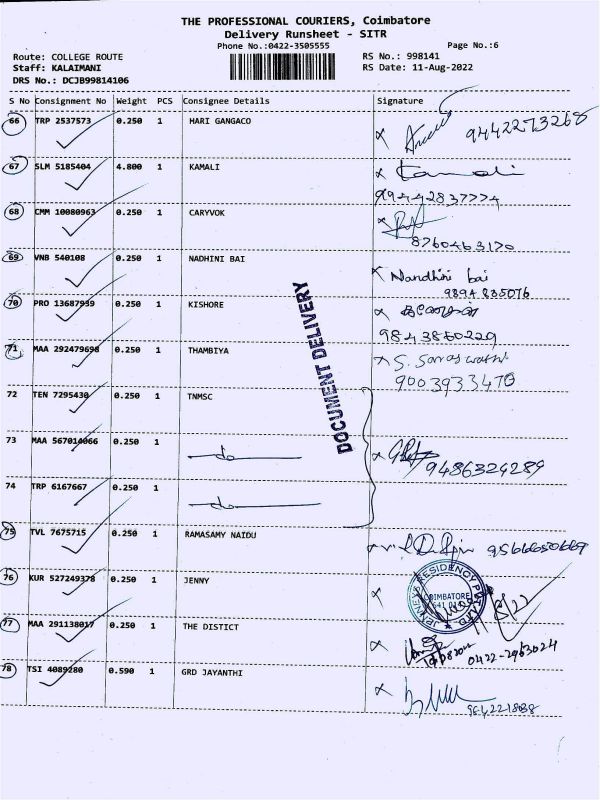 THE PROFESSIONAL COURIERS, Coimbatore
Delivery Runsheet - SITR
Phone No.:0422-3505555
Page No.:6
Route: COLLEGE ROUTE
RS No.: 998141
Staff: KALAIMANI
RS Date: 11-Aug-2022
DRS No.: DCJB99814106
S No Consignment No Weight PCS Consignee Details Signature
66 TRP 2537573 0.250 1 HARI GANGACO 9442273268
67 SLM 5185404 4.800 1 KAMALI Kamali
99442837774
68 CMM 10080963 0.250 1 CARYVOK
8760463170
69 VNB 540108 0.250 1 NADHINI BAI Nandhini bai
9894835076
70 PRO 13687959 0.250 1 KISHORE
9843860229
71 MAA 292479698 0.250 1 THAMBIYA S. Saraswathi
9003933470
DOCUMENT DELIVERY
72 TEN 7295430 0.250 1 TNMSC
73 MAA 567014066 0.250 1 do
9486329289
74 TRP 6167667 0.250 1 do
75 TVL 7675715 0.250 1 RAMASAMY NAIDU
76 KUR 527249378 0.250 1 JENNY
RESIDENCY PVT LTD
COIMBATORE
641 014
77 MAA 291138017 0.250 1 THE DISTICT
0422-2963024
78 TSI 4089280 0.590 1 GRD JAYANTHI